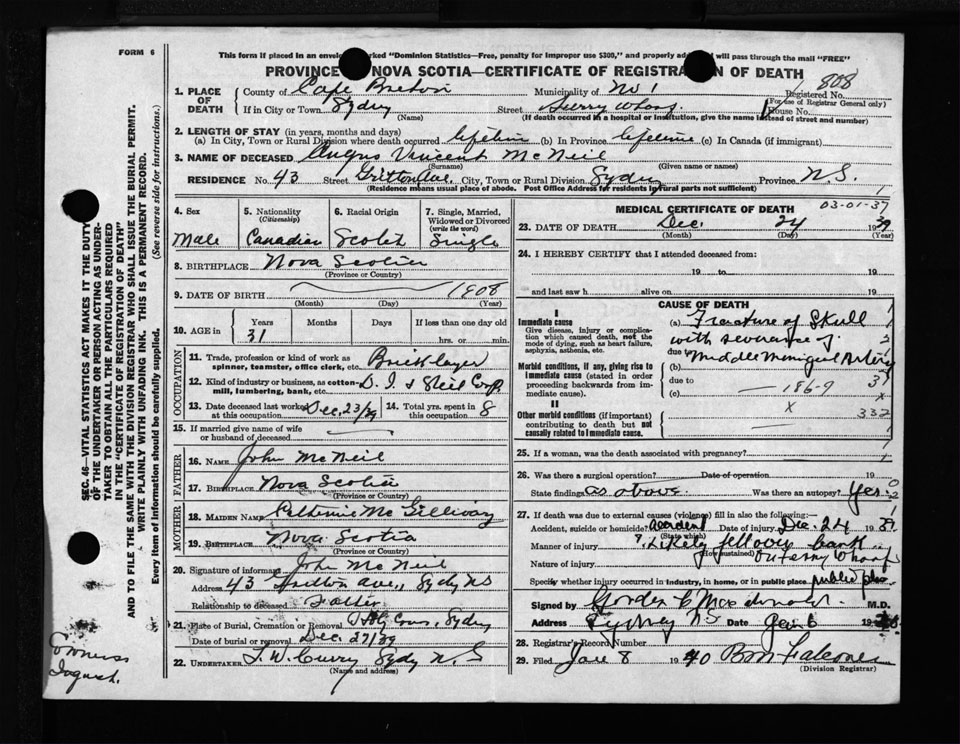 FORM 6
This form if placed in an envelope marked "Dominion Statistics—Free, penalty for improper use $300," and properly addressed will pass through the mail "FREE"
PROVINCE OF NOVA SCOTIA—CERTIFICATE OF REGISTRATION OF DEATH
808
1. PLACE OF DEATH
County of Cape Breton Municipality of No 1 Registered No.
(For use of Registrar General only)
If in City or Town Sydney Street Ferry Wharf House No.
(Name) (If death occurred in a hospital or institution, give the name instead of street and number)
2. LENGTH OF STAY (in years, months and days)
(a) In City, Town or Rural Division where death occurred lifetime (b) In Province lifetime (c) In Canada (if immigrant)
3. NAME OF DECEASED Angus Vincent McNeil
(Surname) (Given name or names)
RESIDENCE No. 43 Street Ave. City, Town or Rural Division Sydney Province N.S.
(Residence means usual place of abode. Post Office Address for residents in rural parts not sufficient)
4. Sex Male
5. Nationality (Citizenship) Canadian
6. Racial Origin Scotch
7. Single, Married, Widowed or Divorced (write the word) Single
8. BIRTHPLACE Nova Scotia
(Province or Country)
9. DATE OF BIRTH 1908
(Month) (Day) (Year)
10. AGE in Years Months Days If less than one day old
31 hrs. or min.
OCCUPATION
11. Trade, profession or kind of work as spinner, teamster, office clerk, etc. Bricklayer
12. Kind of industry or business, as cotton-mill, lumbering, bank, etc. D. I. & Steel Corp
13. Date deceased last worked at this occupation Dec. 23/39
14. Total yrs. spent in this occupation 8
15. If married give name of wife or husband of deceased
FATHER
16. Name John McNeil
17. Birthplace Nova Scotia
(Province or Country)
MOTHER
18. Maiden Name Catherine McGillivary
19. Birthplace Nova Scotia
(Province or Country)
20. Signature of informant John McNeil
Address 43 Ave., Sydney NS
Relationship to deceased Father
21. Place of Burial, Cremation or Removal Holy Cross, Sydney
Date of burial or removal Dec. 27/39
22. UNDERTAKER T. W. Curry Sydney N.S
(Name and address)
MEDICAL CERTIFICATE OF DEATH 03-01-37
23. DATE OF DEATH Dec. 24 1939
(Month) (Day) (Year)
24. I HEREBY CERTIFY that I attended deceased from:
19 to 19
and last saw h alive on 19
CAUSE OF DEATH
I
Immediate cause
Give disease, injury or complication which caused death, not the mode of dying, such as heart failure, asphyxia, asthenia, etc.
(a) Fracture of Skull
with severance of
due to Middle Meningeal Artery
Morbid conditions, if any, giving rise to immediate cause (stated in order proceeding backwards from immediate cause).
(b)
due to
(c) 186-9
II
Other morbid conditions (if important) contributing to death but not causally related to immediate cause.
332
25. If a woman, was the death associated with pregnancy?
26. Was there a surgical operation? Date of operation 19
State findings as above Was there an autopsy? Yes
27. If death was due to external causes (violence) fill in also the following:—
Accident, suicide or homicide? accident Date of injury Dec. 24 1939
(State which)
Manner of injury ? Likely fell over bank
(How sustained)
Nature of injury on ferry wharf
Specify whether injury occurred in industry, in home, or in public place public place
Signed by Gordon C Macdonald M.D.
Address Sydney NS Date Jan 6 19
28. Registrar's Record Number
29. Filed Jan 8 1940 B M Falconer
(Division Registrar)
SEC. 46—VITAL STATISTICS ACT MAKES IT THE DUTY
OF THE UNDERTAKER OR PERSON ACTING AS UNDER-
TAKER TO OBTAIN ALL THE PARTICULARS REQUIRED
IN THE "CERTIFICATE OF REGISTRATION OF DEATH"
AND TO FILE THE SAME WITH THE DIVISION REGISTRAR WHO SHALL ISSUE THE BURIAL PERMIT.
WRITE PLAINLY WITH UNFADING INK. THIS IS A PERMANENT RECORD.
Every item of information should be carefully supplied. (See reverse side for instructions.)
Inquest.